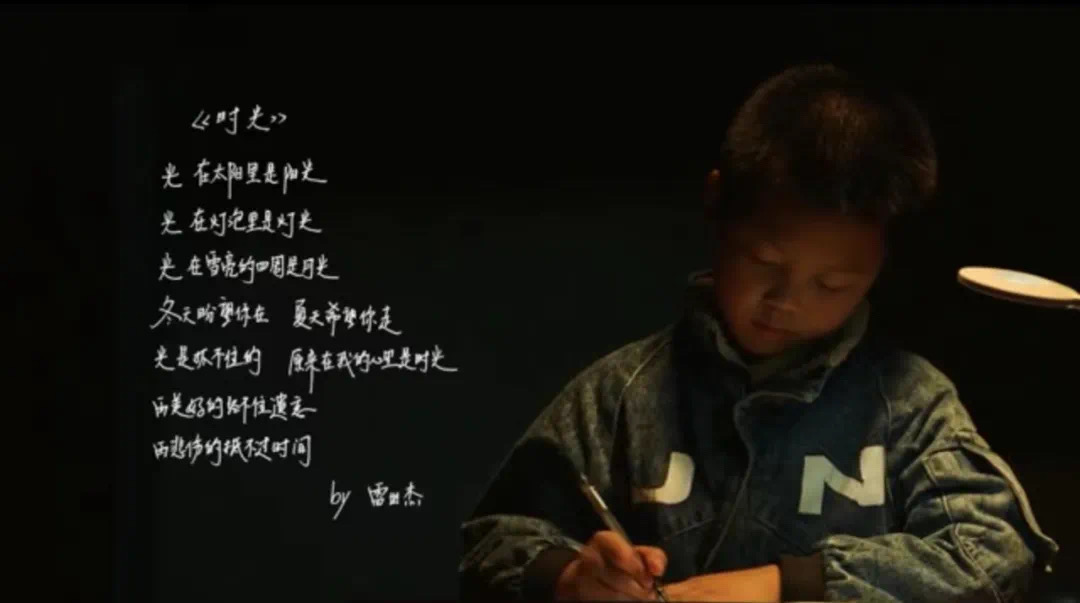 《时光》
光 在太阳里是阳光
光 在灯泡里是灯光
光 在雪亮的四周是月光
冬天盼望你在 夏天希望你走
光是抓不住的 原来在我的心里是时光
再美好的经不住遗忘
再悲伤的抵不过时间
by 雷 杰
N